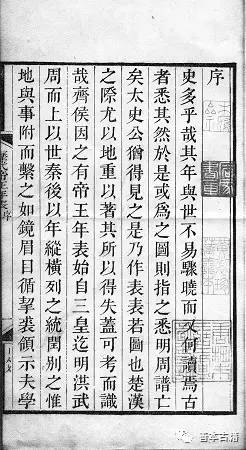 序
史多乎哉其年與世不易驟曉而又何讀焉古
者悉其然於是或為之圖則指之悉明周譜亡
矣太史公猶得見之是乃作表表若圖也楚漢
之際尤以地重以著其所以得失蓋可考而識
哉齊侯因之有帝王年表始自三皇迄明洪武
周而上以世秦後以年縱橫列之統閏別之惟
地與事附而繫之如鏡眉目循挈裘領示夫學
善本古籍